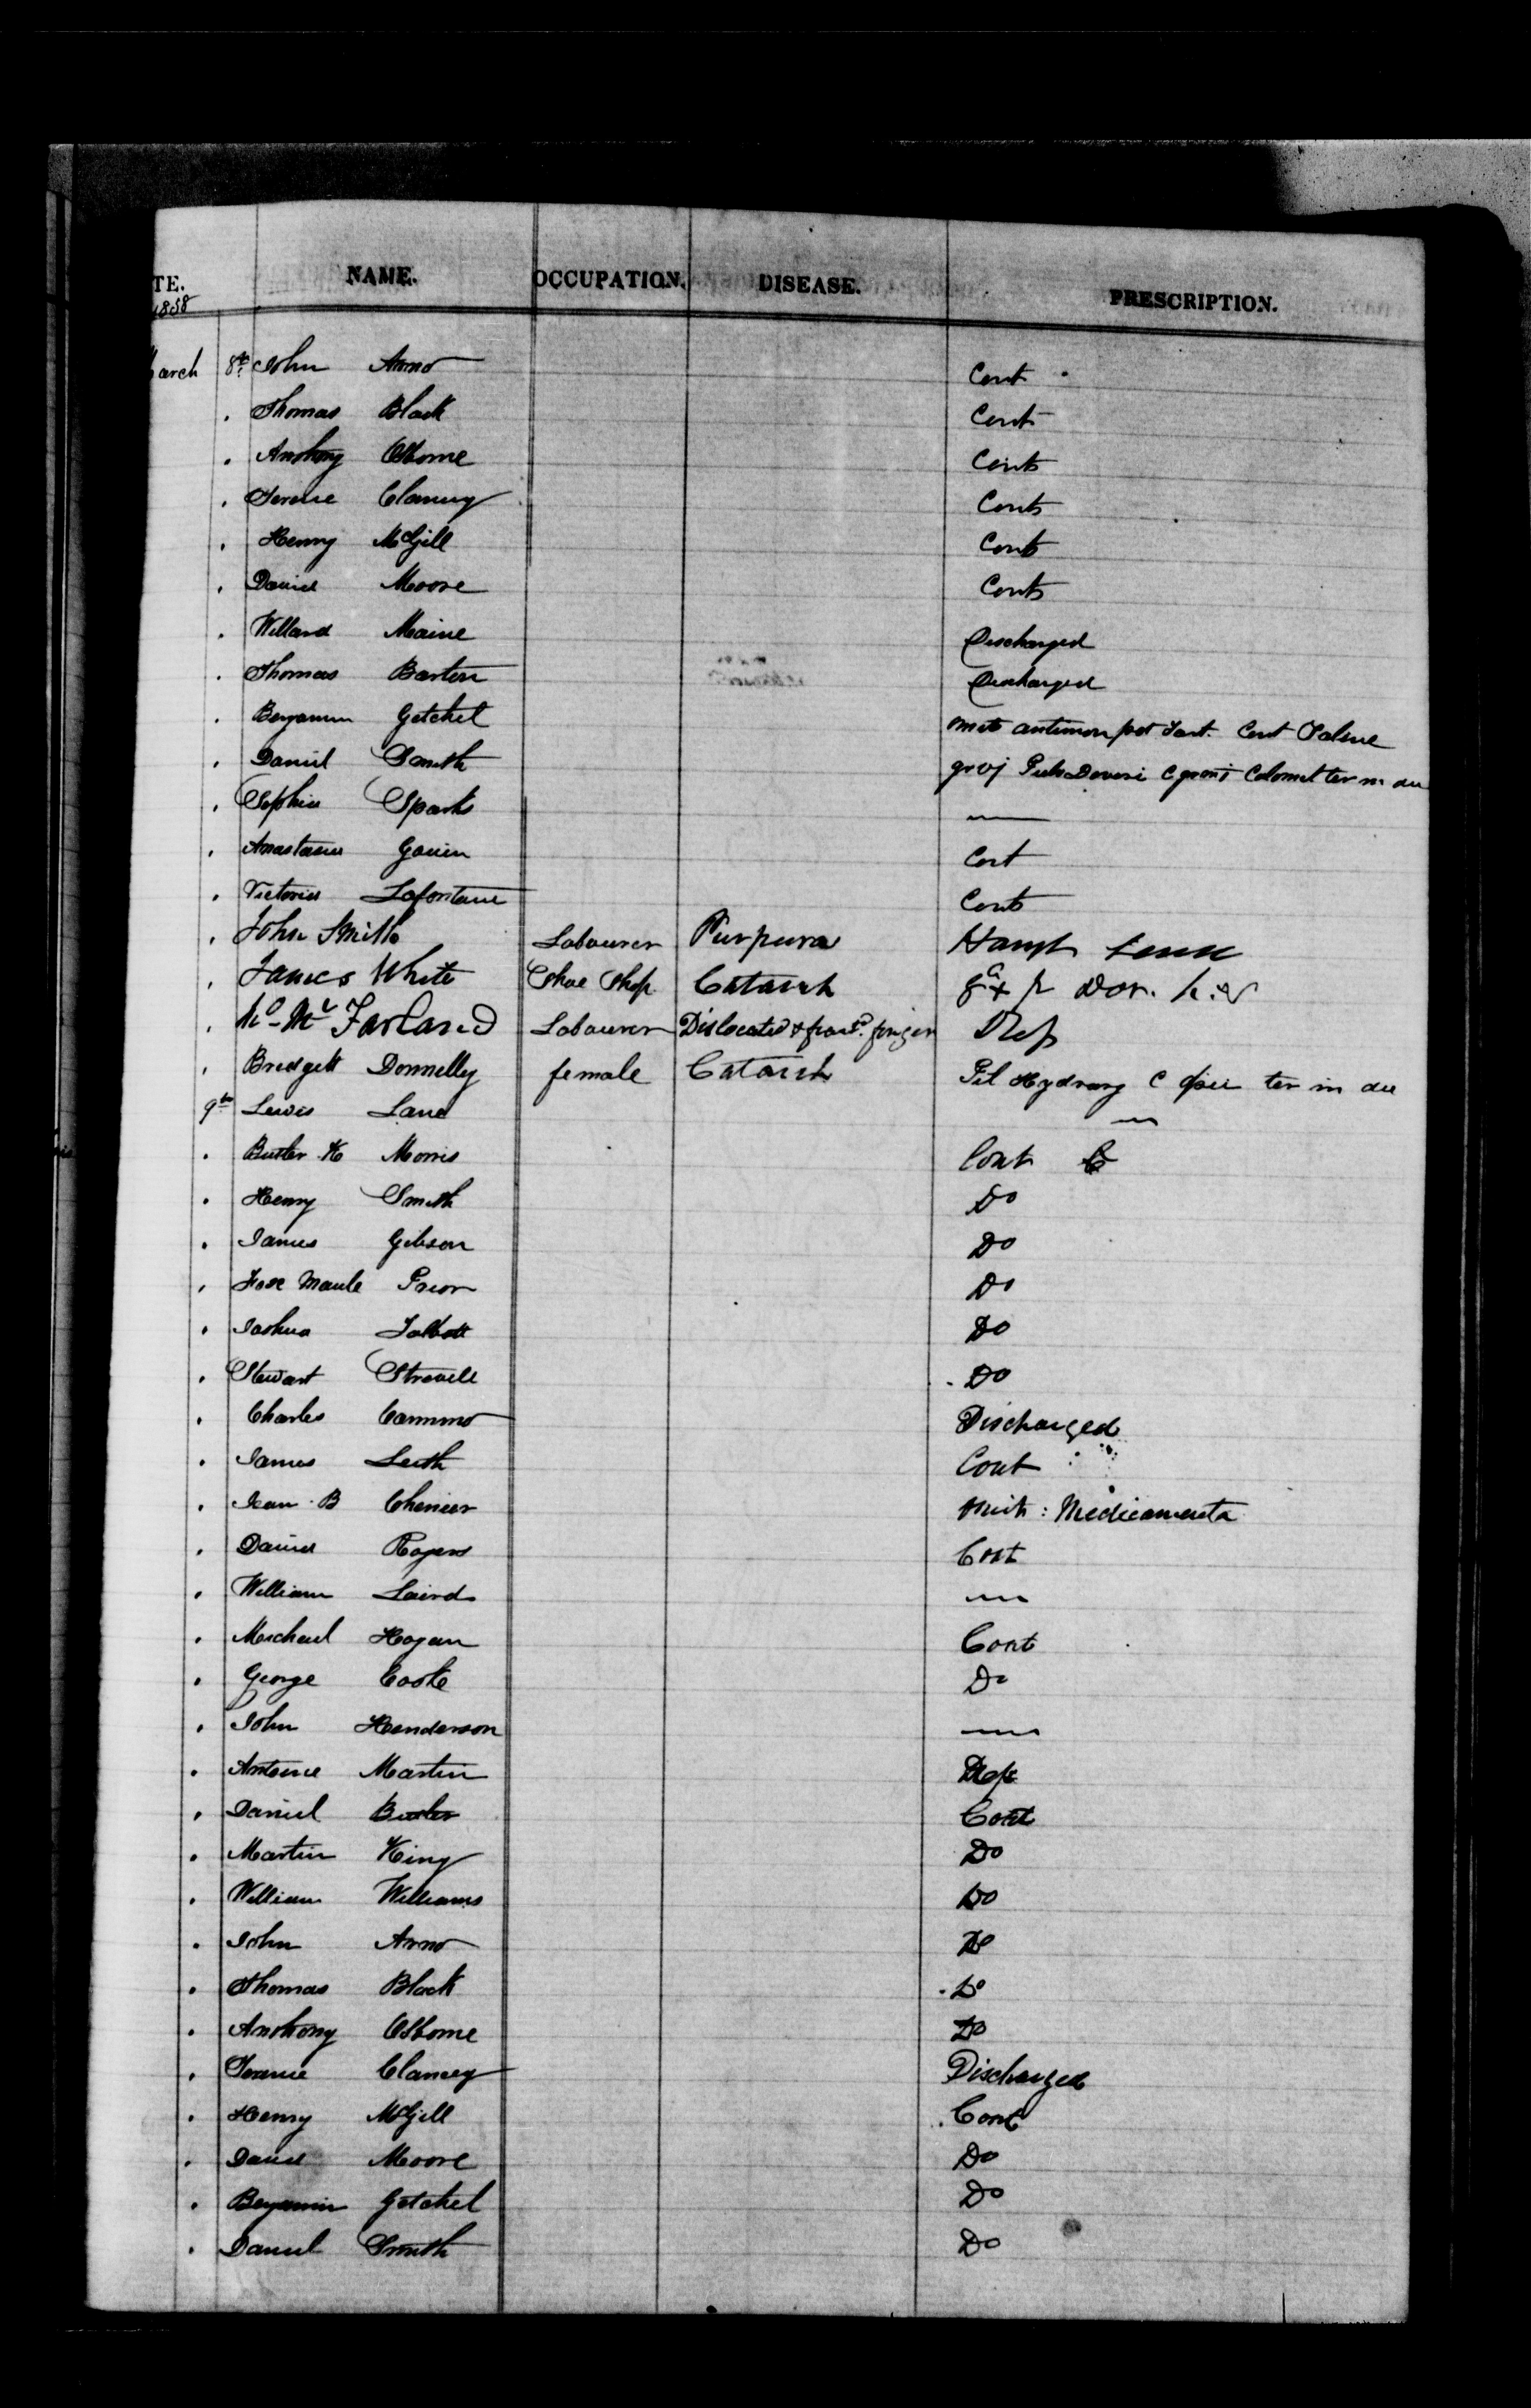 TE. NAME. OCCUPATION. DISEASE. PRESCRIPTION.
1858
arch 8th John Anno Cont
" Thomas Black Cont
" Anthony Osborne Cont
" Terence Clancey Cont
" Henry McGill Cont
" Daniel Moore Cont
" Willard Maine Discharged
" Thomas Barton Discharged
" Benjamin Getchel omit antimon pot Tart. Cont Saline
" Daniel Smith gr vj Pulv Doveri c gr Calomel ter in die
" Sophia Sparks —
" Anastasia Gouin Cont
" Victoria Lafontaine Cont
" John Smith Labourer Purpura Haust
" James White Shoe Shop Catarrh Dov.
" McFarland Labourer Dislocated & finger Rep
" Bridgett Donnelly female Catarrh Pil Hydrarg c ter in die
9th Lewis Lane —
" Butler H Morris Cont
" Henry Smith Do
" James Gibson Do
" Fox Maule Prior Do
" Joshua Talbott Do
" Stewart Strevell Do
" Charles Cammo Discharged
" James Leith Cont
" Jean B Chenier omit: Medicamenta
" Daniel Rogers Cont
" William Laird —
" Michael Hogan Cont
" George Cooke Do
" John Henderson —
" Antoine Martin Rep
" Daniel Butler Cont
" Martin King Do
" William Williams Do
" John Anno Do
" Thomas Black Do
" Anthony Osborne Do
" Terence Clancey Discharged
" Henry McGill Cont
" Daniel Moore Do
" Benjamin Getchel Do
" Daniel Smith Do